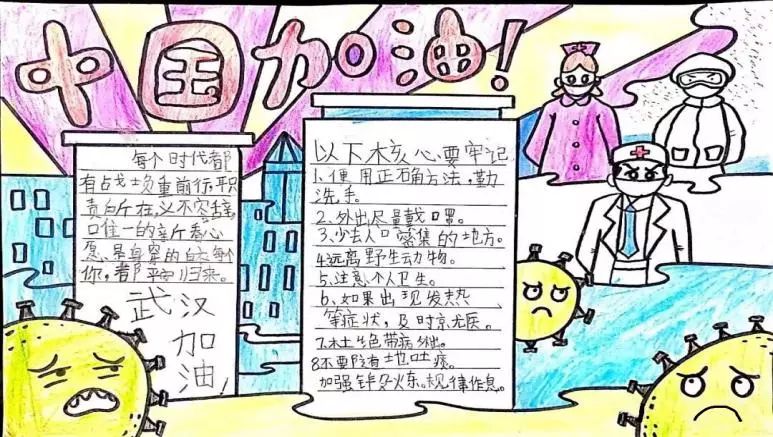 中国加油!
每个时代都
有战士负重前行,职
责所在,义不容辞
口唯一的新春心
愿、是身穿的白衣每个
你,都平安归来。
武汉
加
油!
以下核心要牢记
1、使用正确方法,勤
洗手。
2、外出尽量戴口罩。
3、少去人口密集的地方。
4、远离野生动物。
5、注意个人卫生。
6、如果出现发热
等症状,及时京尤医。
7、杜绝带病外出。
8、不要随地吐痰。
加强锻炼、规律作息。